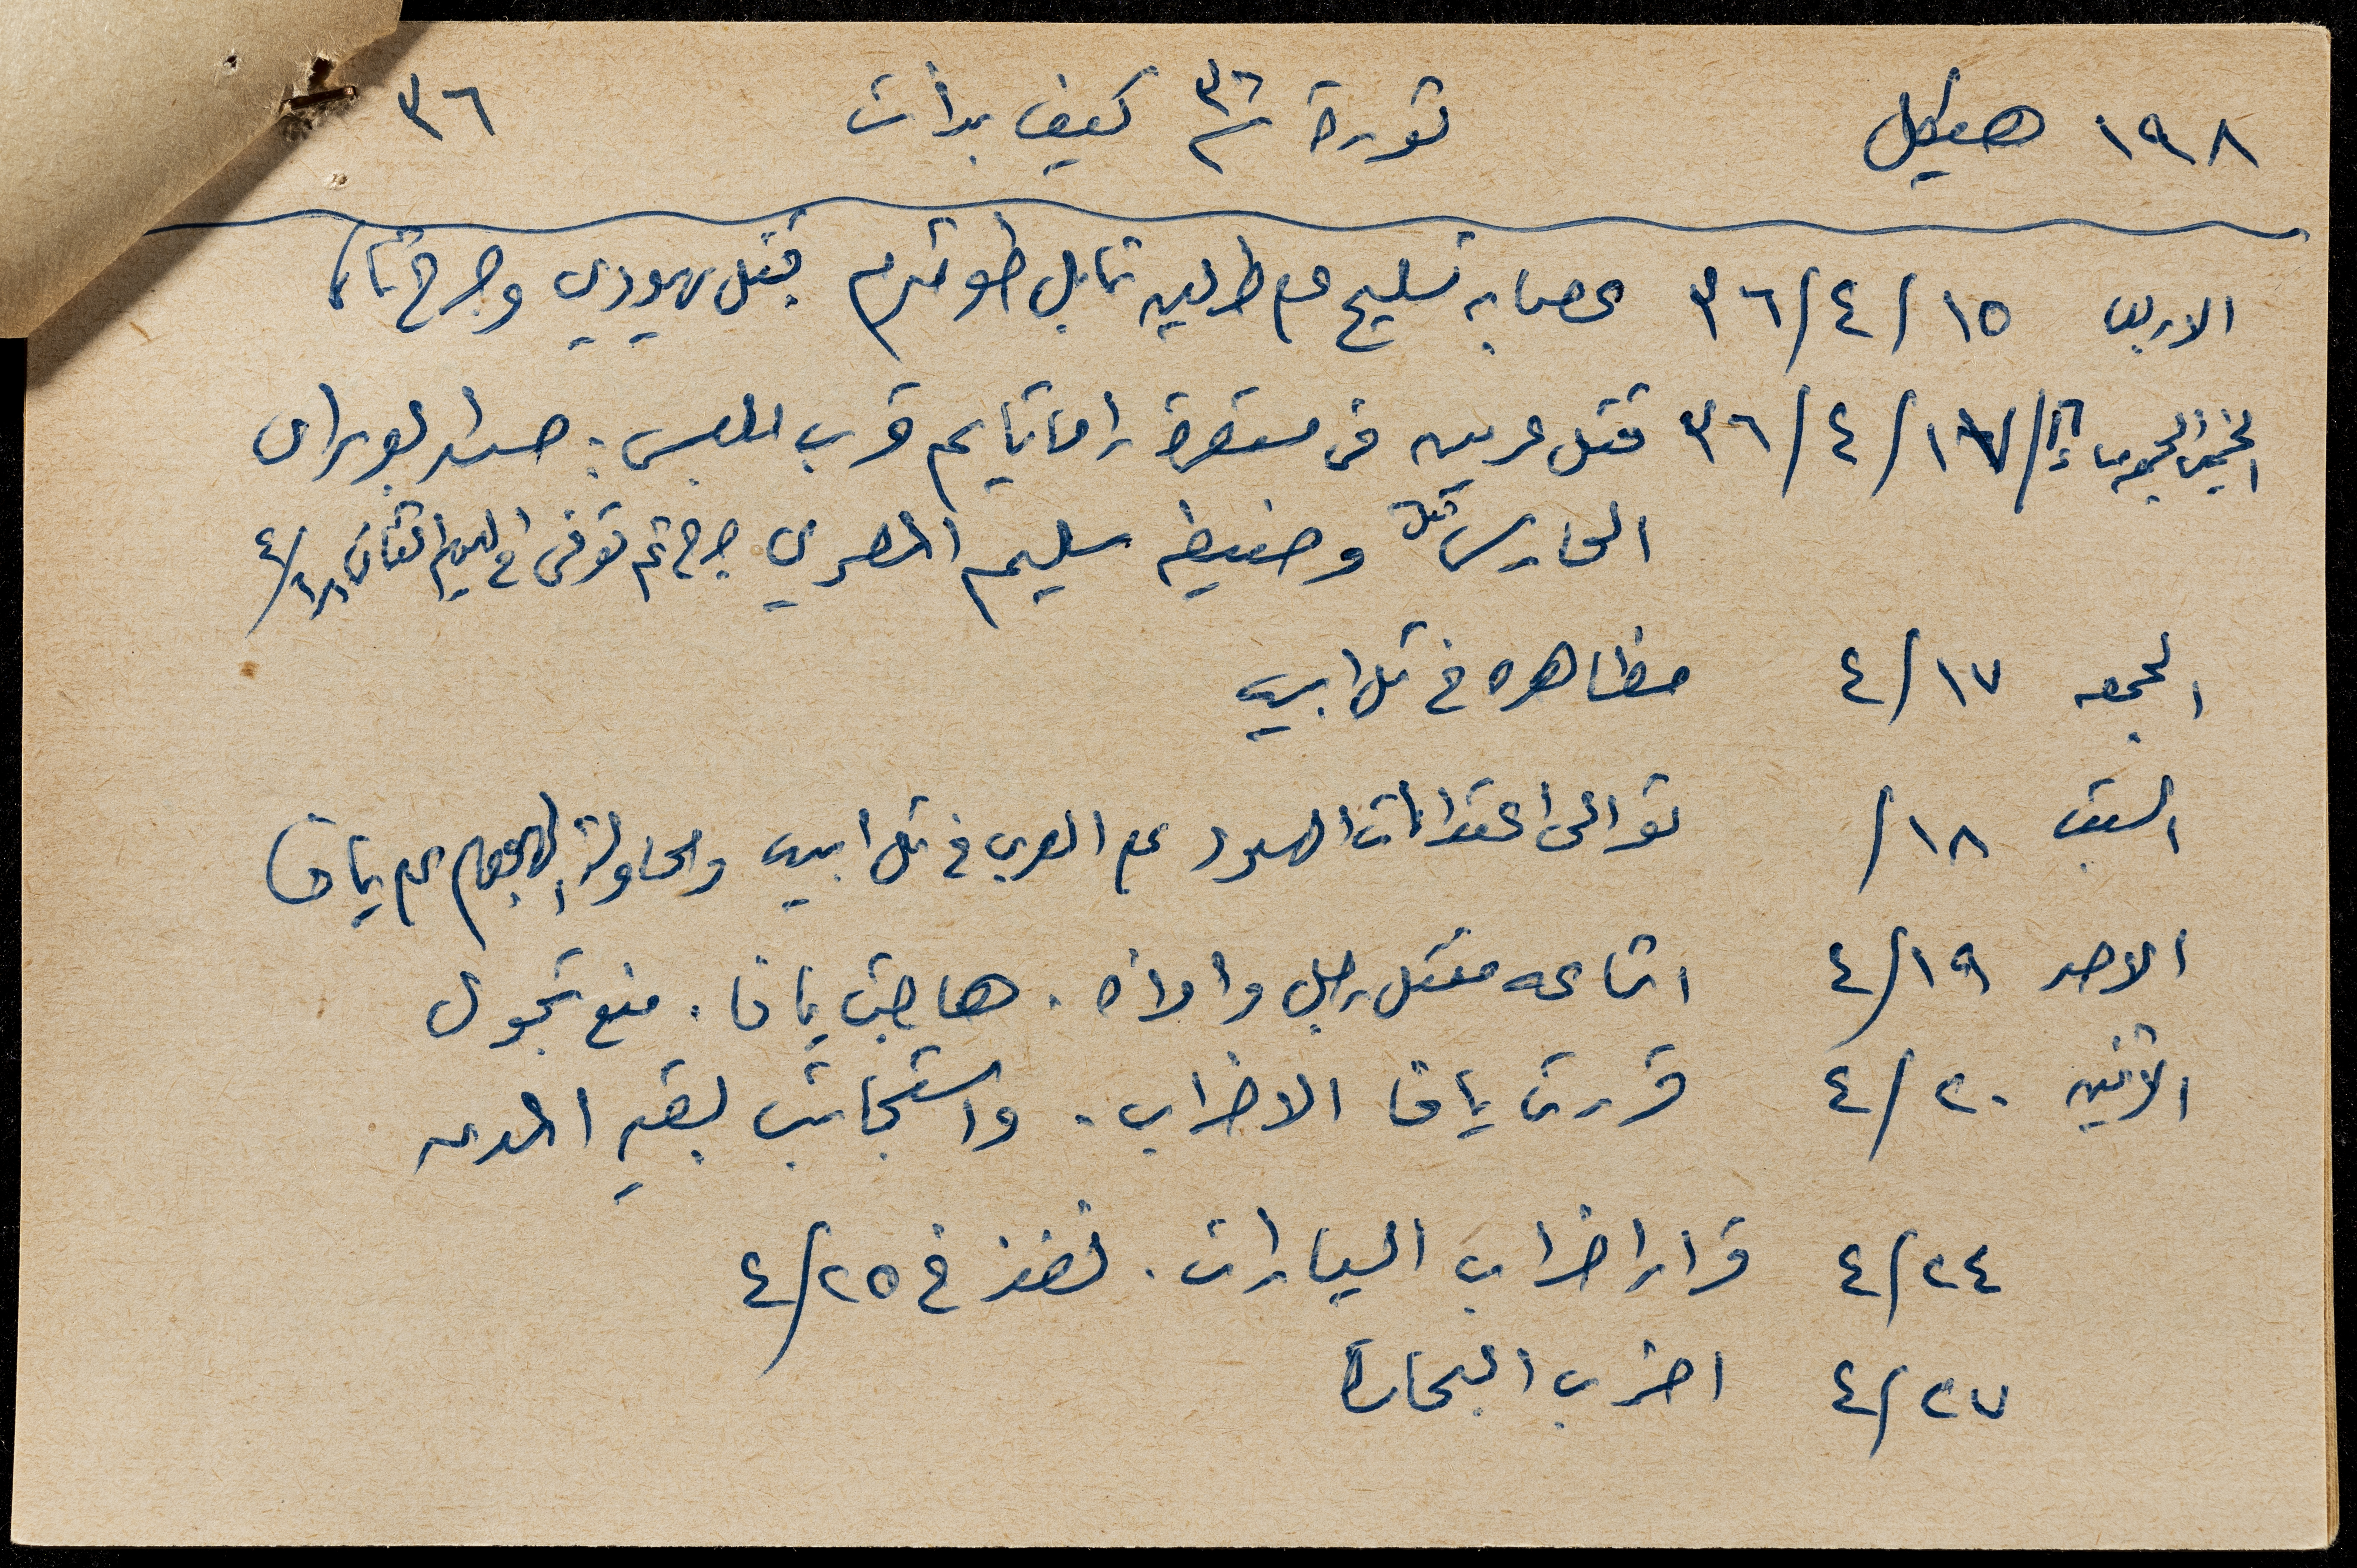 ١٩٨ هيكل ثورة سنة ٣٦ كيف بدأت ٣٦
الاربعا ١٥/٤/٣٦ عصابه تسليح على طريق نابلس طولكرم قتل يهودي وجرح ثان
الخميس الجمعه مساء ١٦/١٧/٤/٣٦ قتل عربيين في مستعمرة راماتايم قرب الملبس: حسن ابو راس
الحارس قتل وضيفه سليم المصري جرح ثم توفى في اليوم الثاني ٤/١٨
الجمعه ٤/١٧ مظاهره في تل ابيب
السبت ١٨/ توالى اعتداءات اليهود على العرب في تل ابيب ومحاولة الهجوم على يافا
الاحد ٤/١٩ اشاعه مقتل رجل وامرأه. هاجت يافا. منع تجول
الاثنين ٤/٢٠ قررت يافا الاضراب. واستجابت بقية المدن
٤/٢٤ قرار اضراب السيارات. نفذ في ٤/٢٥
٤/٢٧ اضرب البحارة